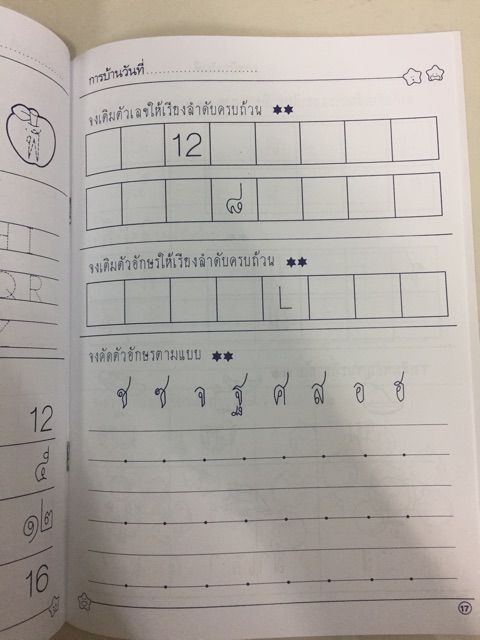 การบ้านวันที่
จงเติมตัวเลขให้เรียงลำดับครบถ้วน
12
๘
จงเติมตัวอักษรให้เรียงลำดับครบถ้วน
L
จงคัดตัวอักษรตามแบบ
ช ซ จ ฐ ศ ส อ ฮ
17
H I
Q R
12
๕
๑๒
16